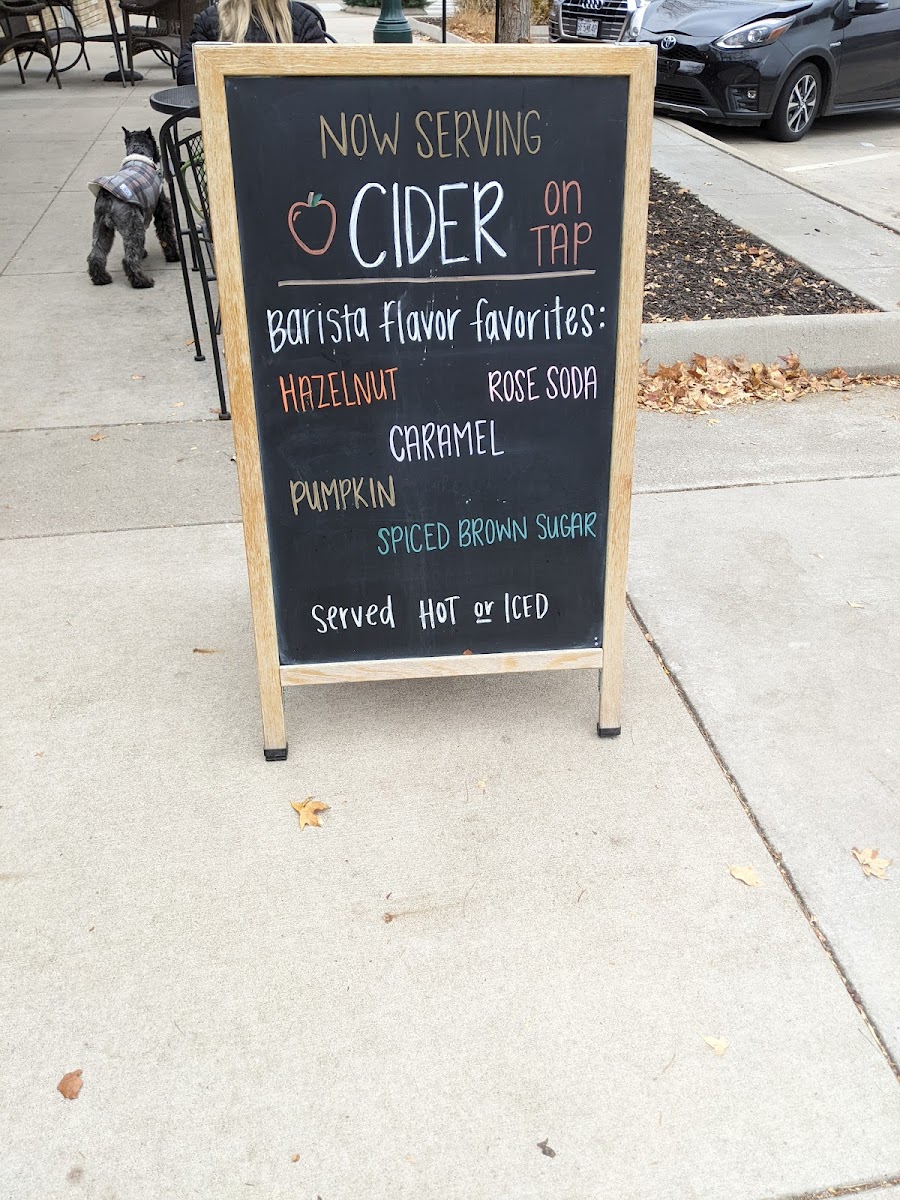 NOW SERVING
CIDER on TAP
Barista flavor favorites:
HAZELNUT ROSE SODA
CARAMEL
PUMPKIN
SPICED BROWN SUGAR
Served HOT or ICED